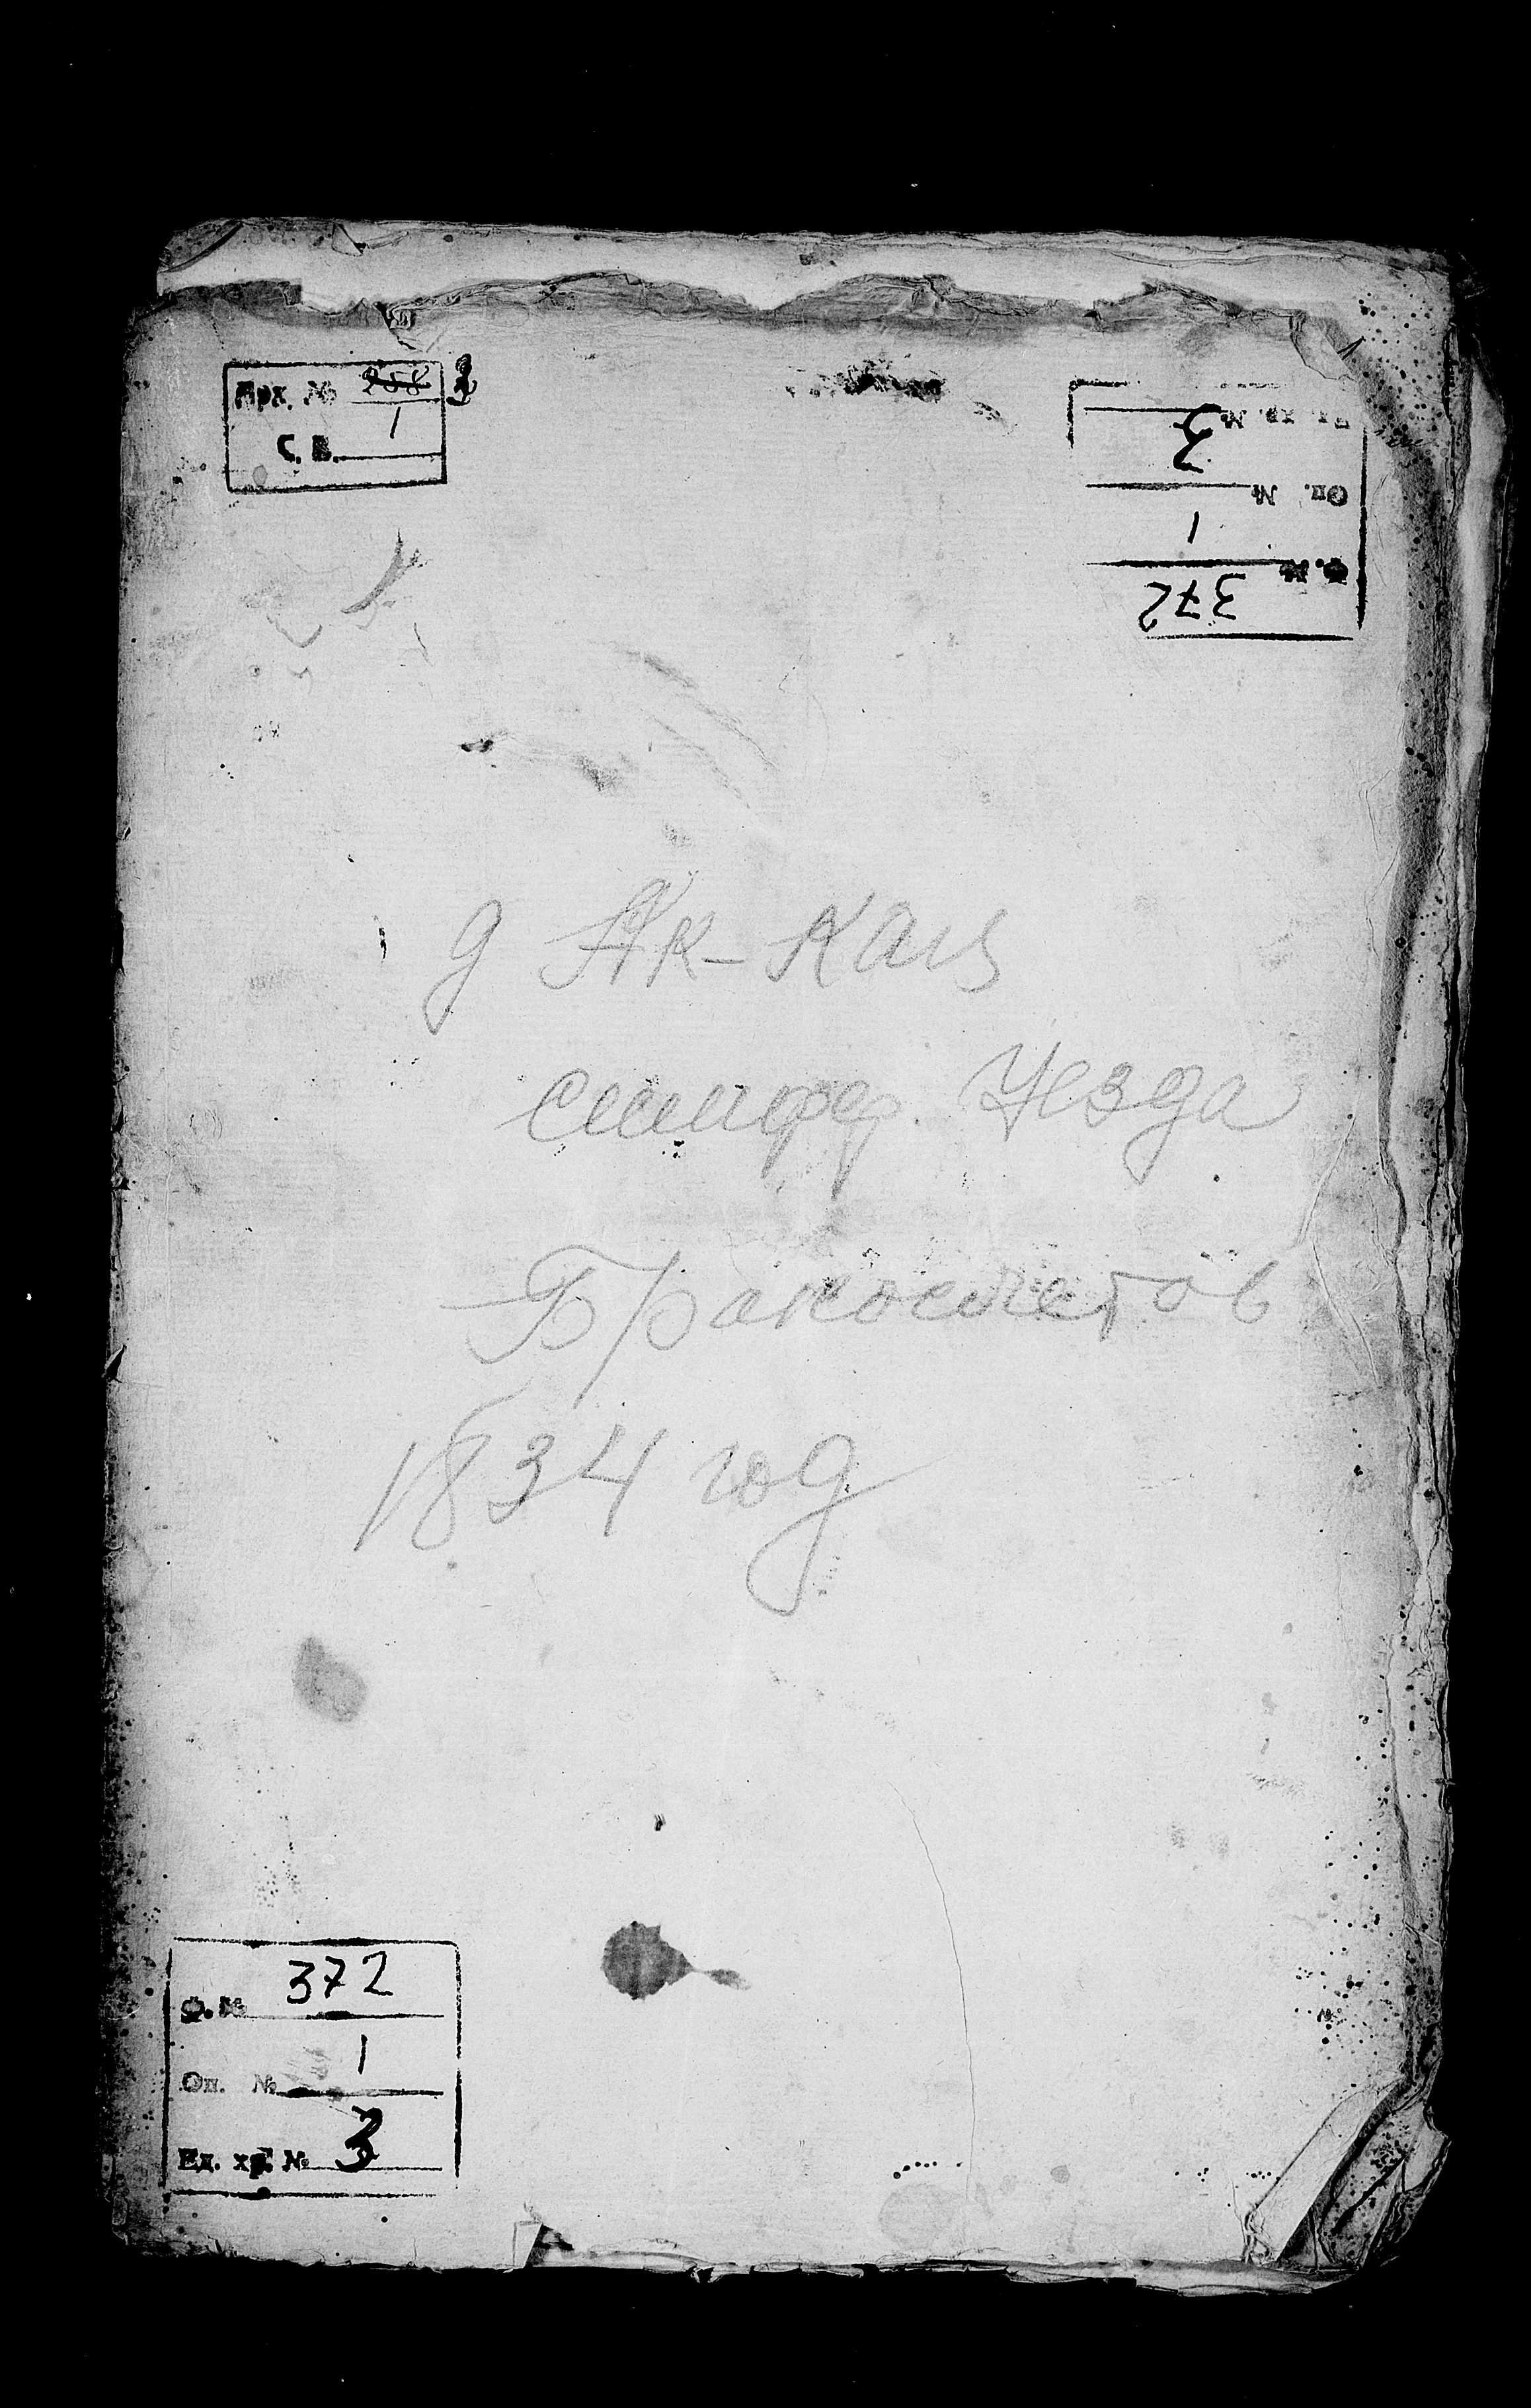 Арх. № 258 3
1
С. В.
Ед. хр. №
3
Оп. №
1
Ф. №
372
д Ак-Кая
симфер. Уезда
Бракосчетов
1834 год
372
Ф. №
1
Оп. №
Ед. хр. № 3